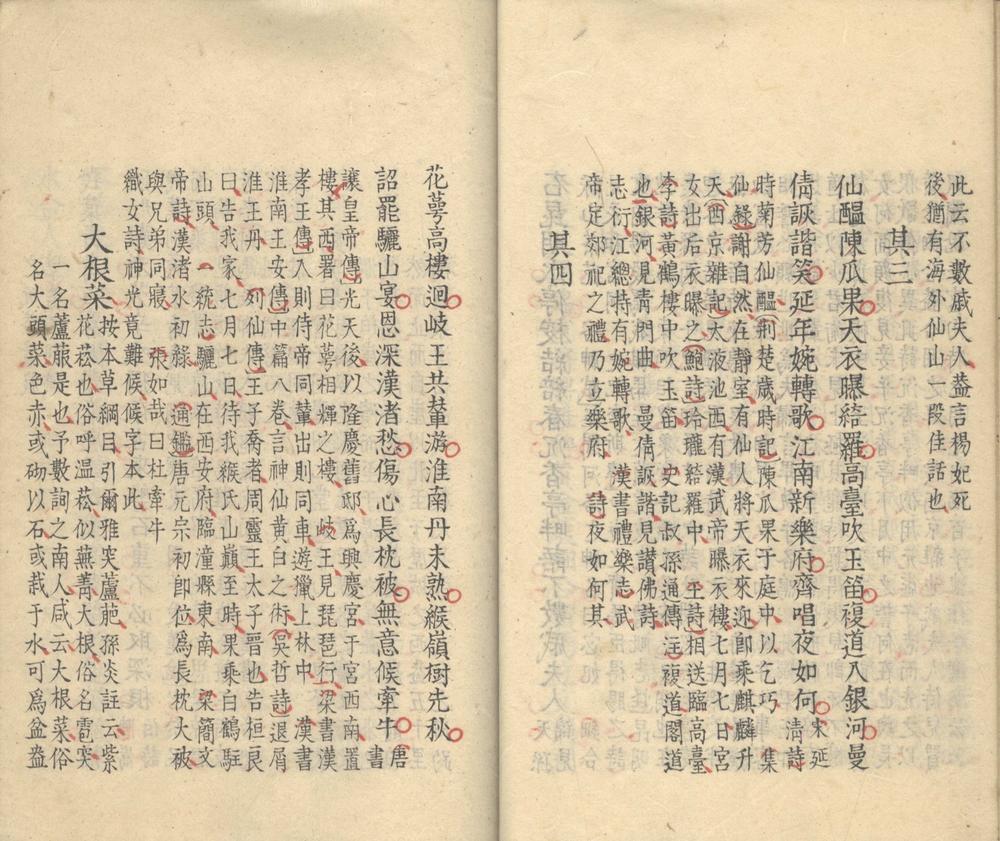 此云不數戚夫人葢言楊妃死
後猶有海外仙山一段佳話也
其三
仙醞陳瓜果天衣曝綺羅高臺吹玉笛複道入銀河曼
倩詼諧笑延年婉轉歌江南新樂府齊唱夜如何 宋延
清詩
時菊芳仙醞荆楚歲時記陳瓜果于庭中以乞巧 集
仙錄謝自然在靜室有仙人將天衣來迎卽乘麒麟升
天西京雜記太液池西有漢武帝曝衣樓七月七日宮
女出后衣曝之鮑詩玲瓏綺羅中 王詩相送臨高臺
李詩黃鶴樓中吹玉笛 史記叔孫通傳注複道閣道
也銀河見青門曲 曼倩詼諧見讃佛詩
志衍江總持有婉轉歌 漢書禮樂志武
帝定郊祀之禮乃立樂府 詩夜如何其
其四
花萼高樓迴岐王共輦游淮南丹未熟緱嶺樹先秋
詔罷驪山宴恩深漢渚愁傷心長枕被無意候牽牛 唐
書
讓皇帝傳光天後以隆慶舊邸爲興慶宮于宮西南置
樓其西署曰花萼相輝之樓 岐王見琵琶行梁書漢
孝王傳入則侍帝同輦出則同車遊獵上林中 漢書
淮南王安傳中篇八卷言神仙黃白之術吳哲詩退屑
淮王丹 列仙傳王子喬者周靈王太子晉也告桓良
曰告我家七月七日待我緱氏山巔至時果乘白鶴駐
山頭 一統志驪山在西安府臨潼縣東南 梁簡文
帝詩漢渚水初綠 通鑑唐元宗初卽位爲長枕大被
與兄弟同寢 張如哉曰杜牽牛
織女詩神光竟難候候字本此
大根菜 按本草綱目引爾雅突蘆萉孫炎註云紫
花菘也俗呼温菘似蕪菁大根俗名雹突
一名蘆菔是也予數詢之南人咸云大根菜俗
名大頭菜色赤或砌以石或栽于水可爲盆盎